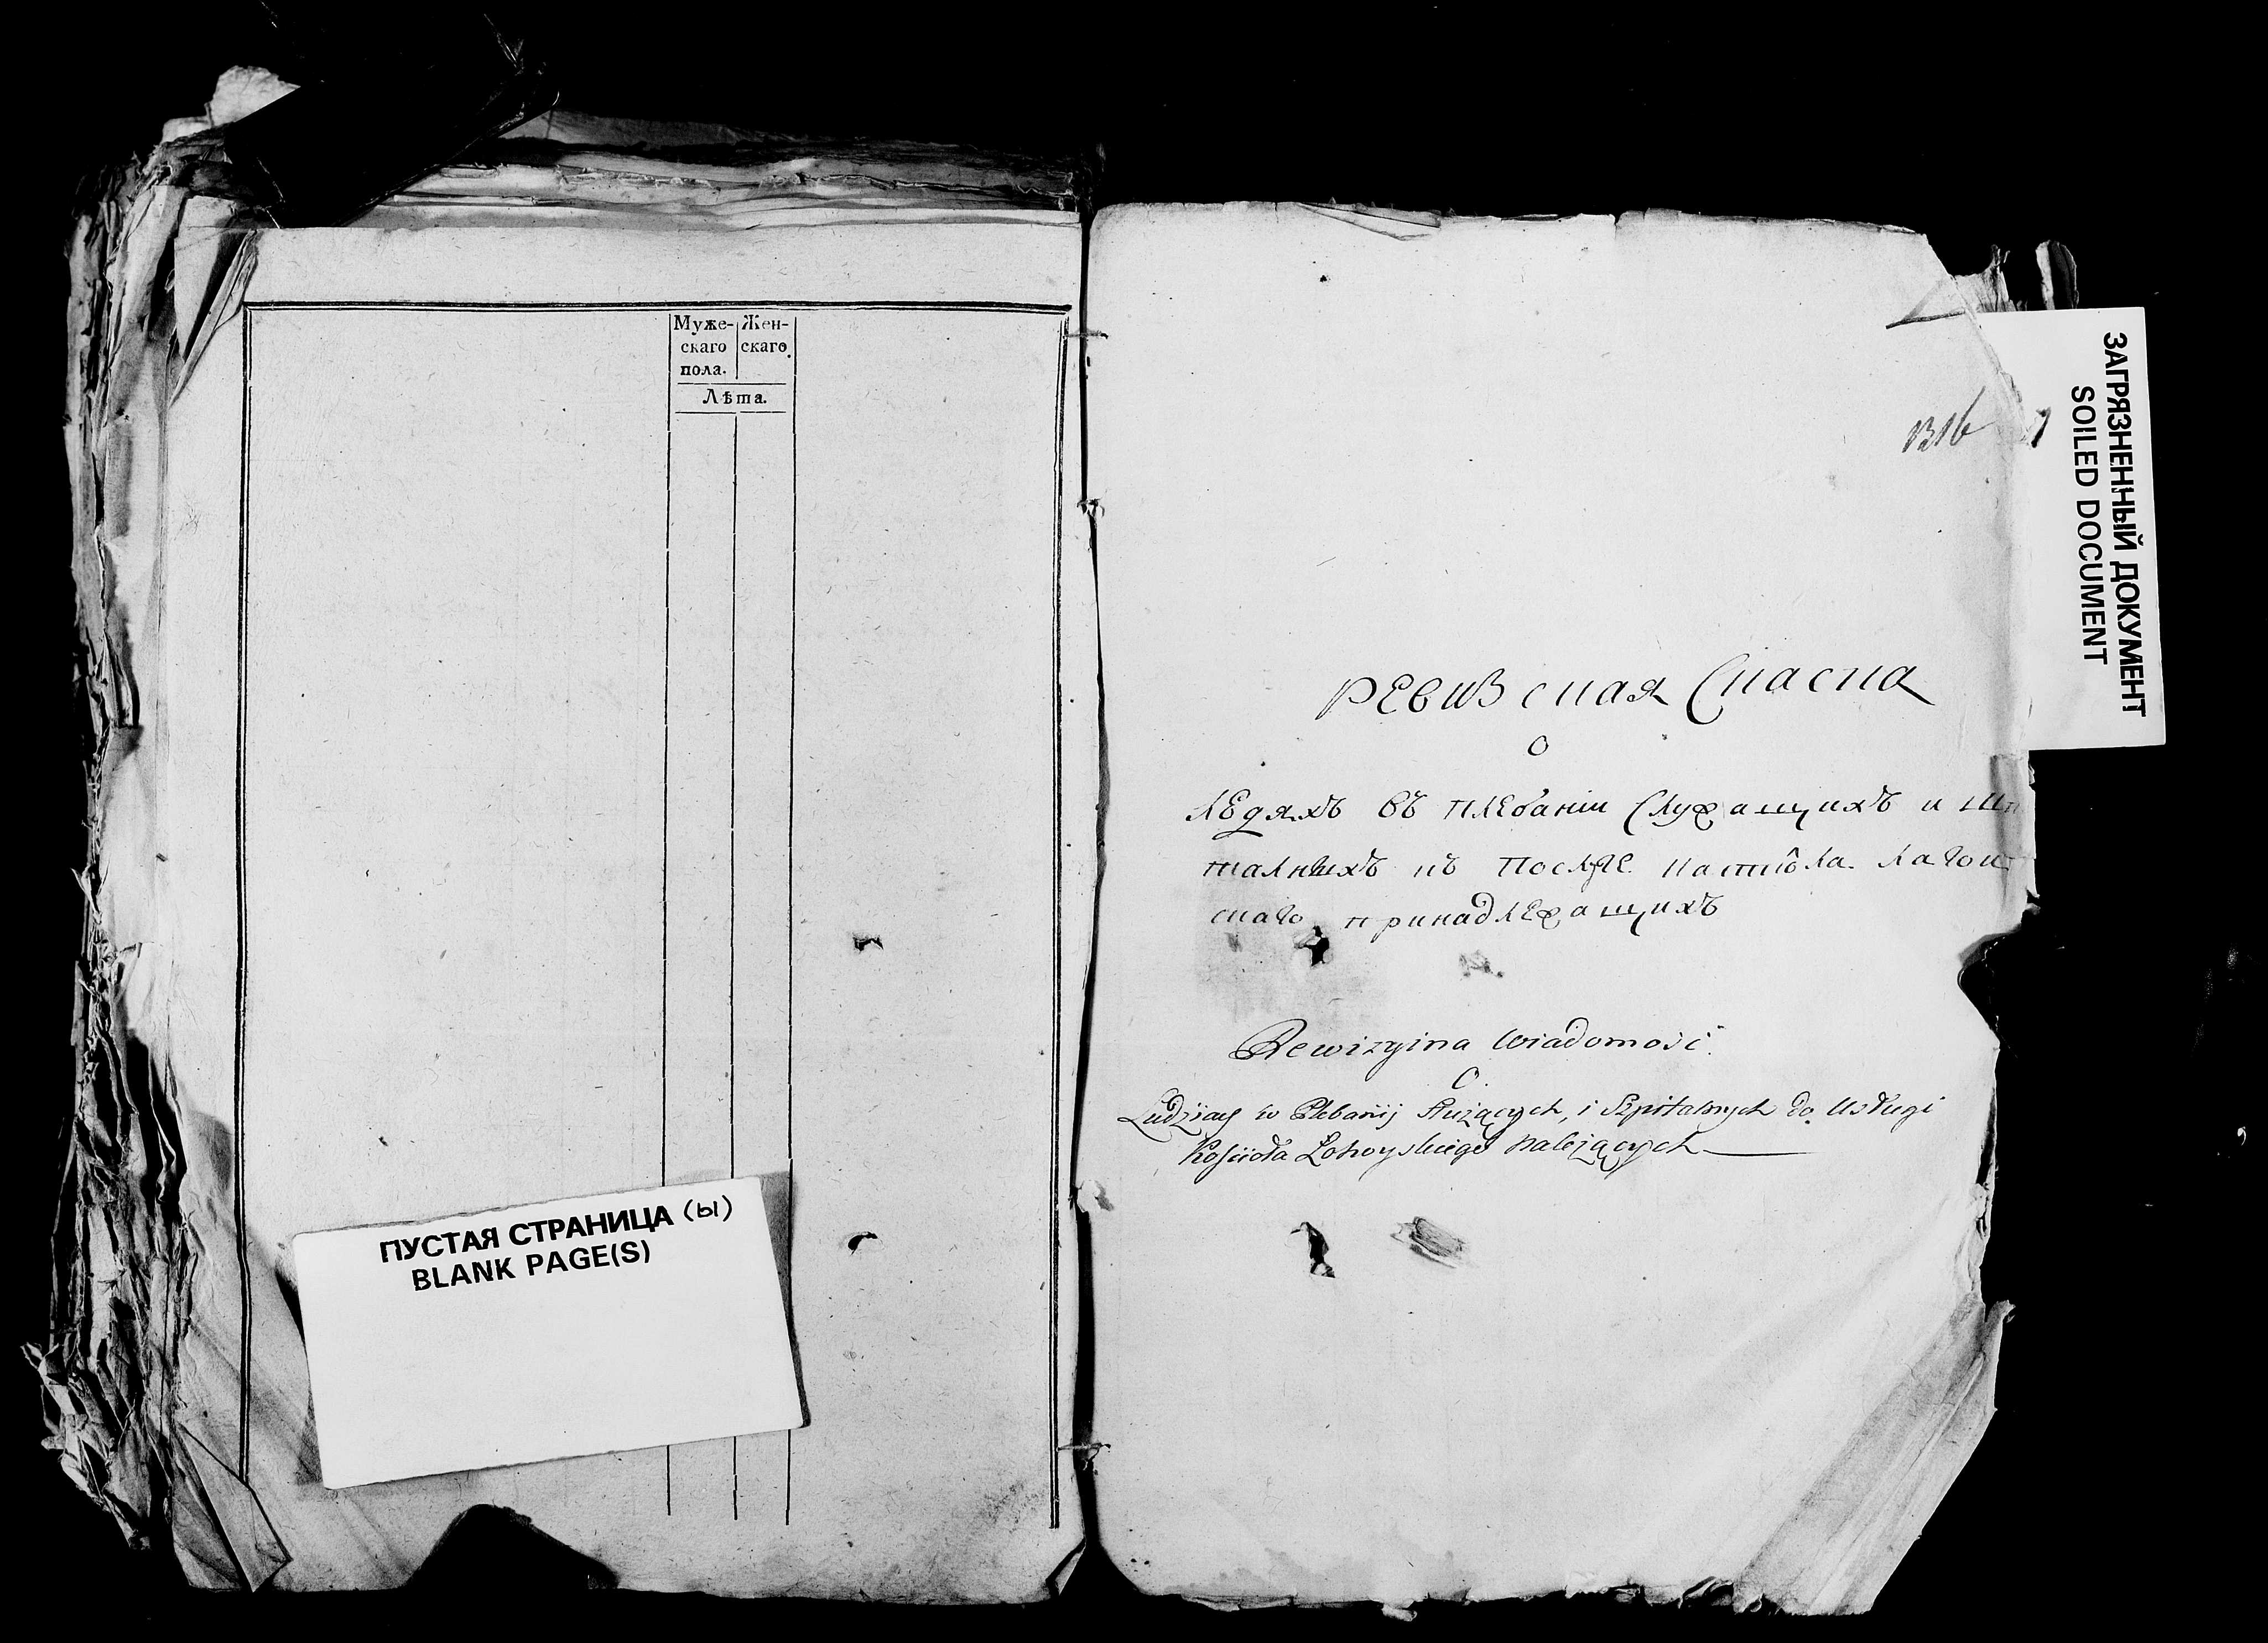 Муже-
скаго
пола.
Жен-
скаго.
Лѣта.
ПУСТАЯ СТРАНИЦА (ы)
BLANK PAGE(S)
ЗАГРЯЗНЕННЫЙ ДОКУМЕНТ
SOILED DOCUMENT
1316
РЕвиЗская Сказка
о
лЕдяхъ въ плЕбаніи Служащихъ и шп
талныхъ къ послугЕ Костіола Лагои
скаго принадлЕжащихъ
Rewizyina Wiadomość
O
Ludziach w Plebanij Służących, i Szpitalnych do Usługi
Kościoła Łohoyskiego Należących